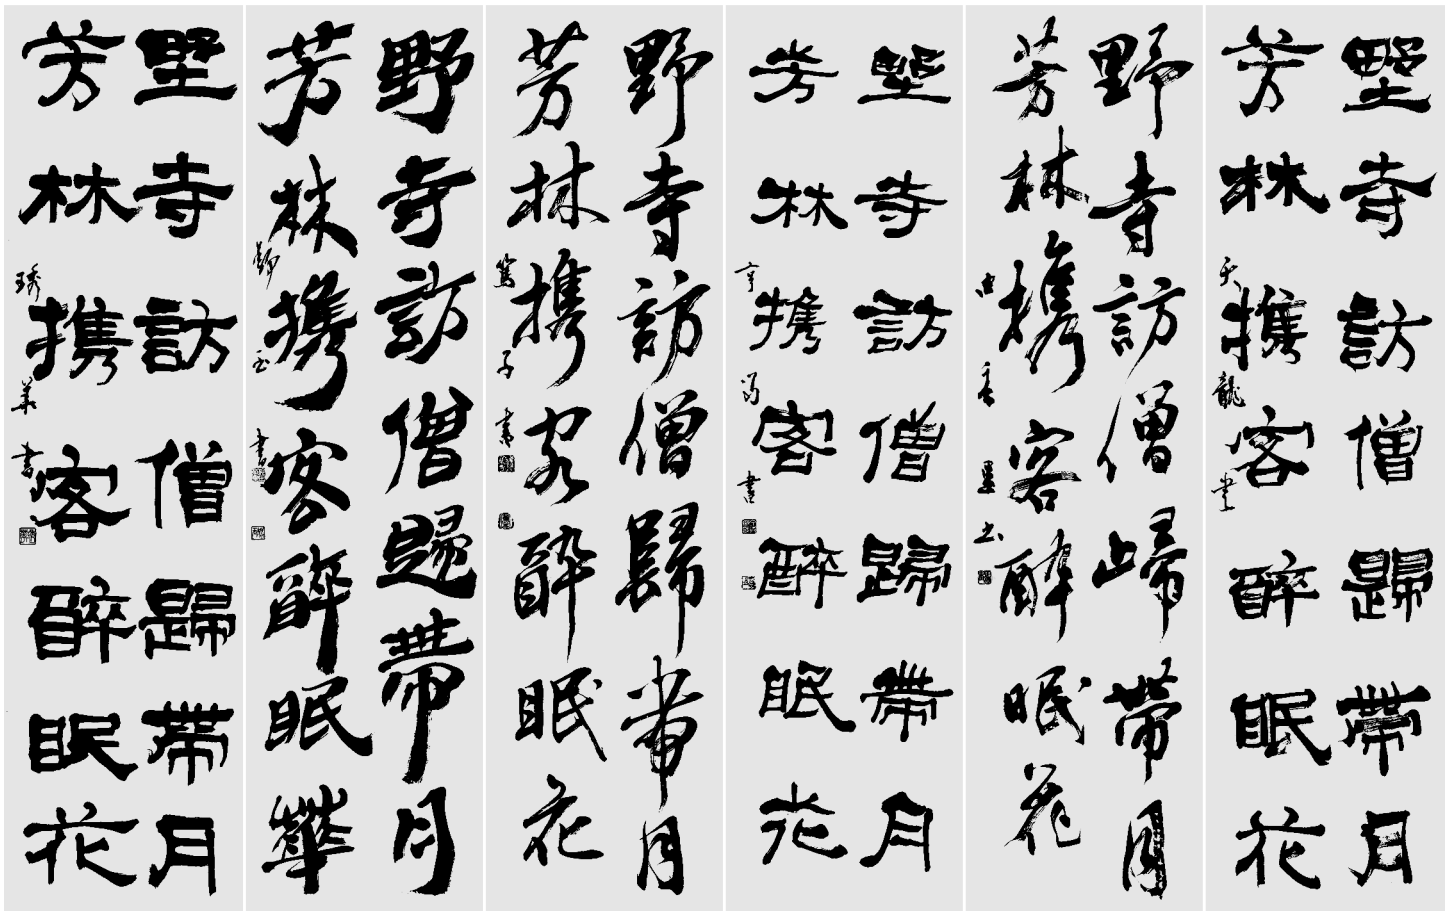 野寺訪僧歸帶月
芳林携客醉眠花
天龍書
野寺訪僧歸帶月
芳林携客醉眠花
野寺訪僧歸帶月
芳林携客醉眠花
亨 書
野寺訪僧歸帶月
芳林携客醉眠花
篤子書
野寺訪僧歸帶月
芳林携客醉眠華
静玉書
野寺訪僧歸帶月
芳林携客醉眠花
琇華書